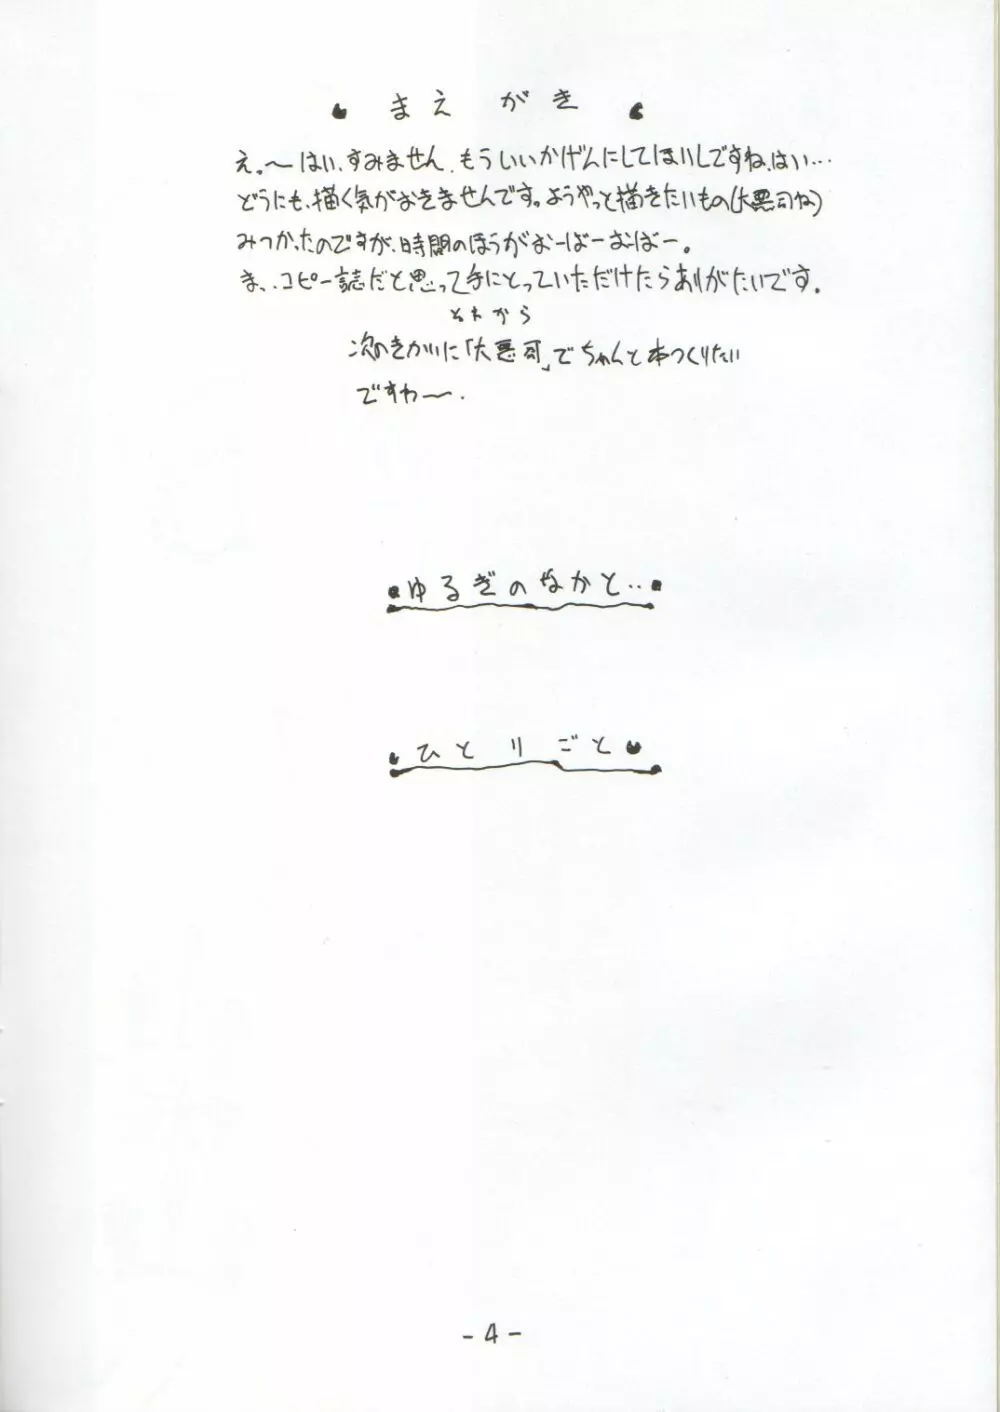 まえがき
え。〜はい、すみません、もういいかげんにしてほしいですね、はい…
どうにも、描く気がおきませんです。ようやっと描きたいもの(大悪司ね)
みつかったのですが、時間のほうがおーばーおーばー。
ま、、コピー誌だと思って手にとっていただけたらありがたいです。
それから
次のきかいに「大悪司」でちゃんと本つくりたい
ですわ〜.
ゆるぎのなかと‥
ひとりごと
-4-